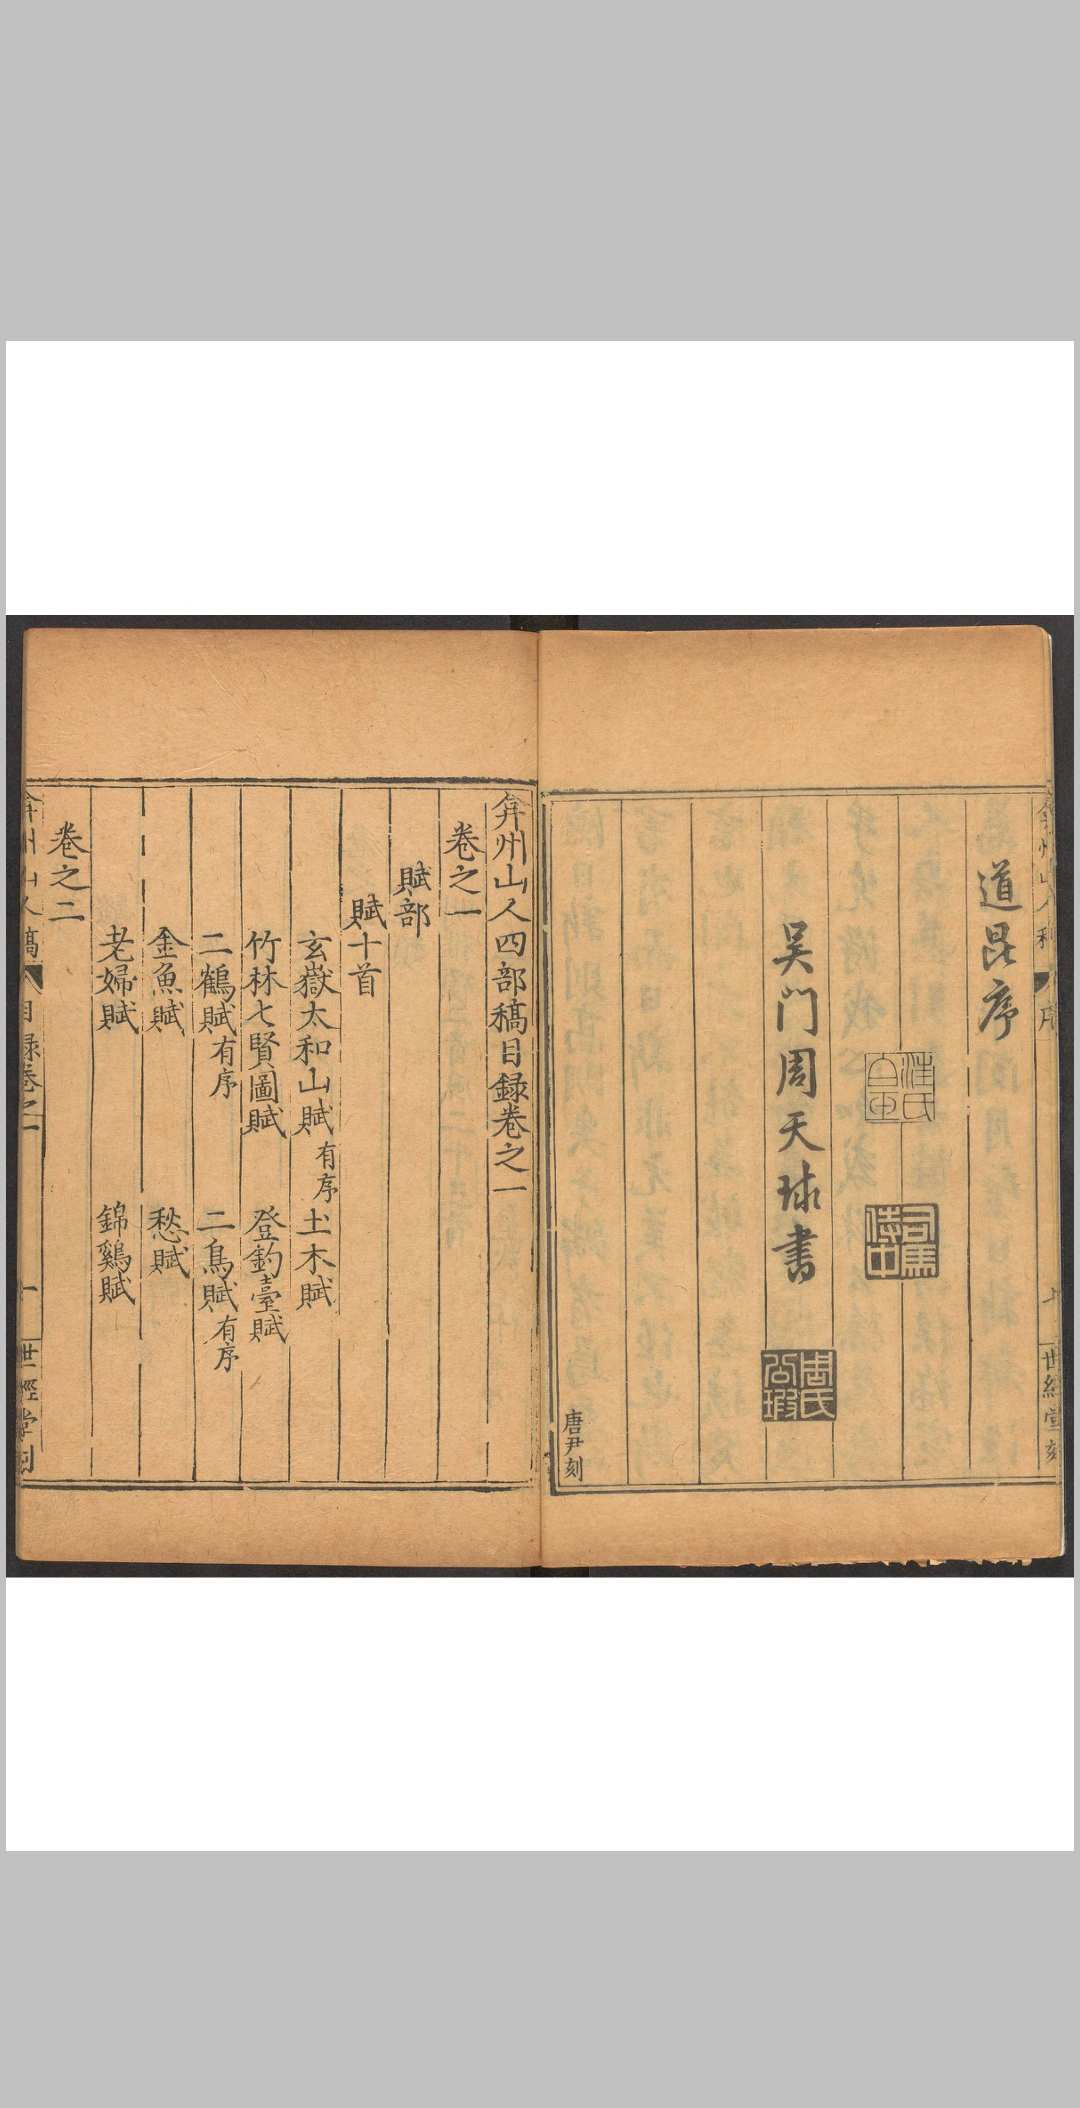 道昆序
吳門周天球書
周氏公瑕
唐尹刻
世經堂刻
弇州山人四部稿目錄卷之一
卷之一
賦部
賦十首
玄嶽太和山賦有序 土木賦
竹林七賢圖賦 登釣臺賦
二鶴賦有序 二鳥賦有序
金魚賦 愁賦
老婦賦 錦鷄賦
卷之二
弇州山人稿 目錄卷之一 一 世經堂刻